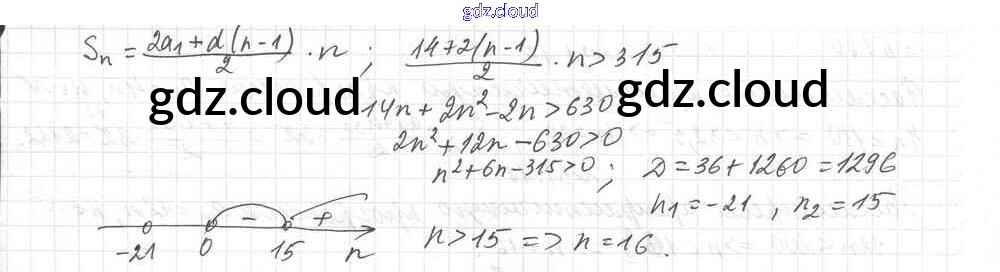 gdz.cloud
Sn = (2a₁ + d(n-1))/2 · n ; (14+2(n-1))/2 · n > 315
gdz.cloud gdz.cloud
14n + 2n² - 2n > 630
2n² + 12n - 630 > 0
n² + 6n - 315 > 0 ; D = 36 + 1260 = 1296
n₁ = -21 , n₂ = 15
- +
-21 0 15 n
n > 15 => n = 16.